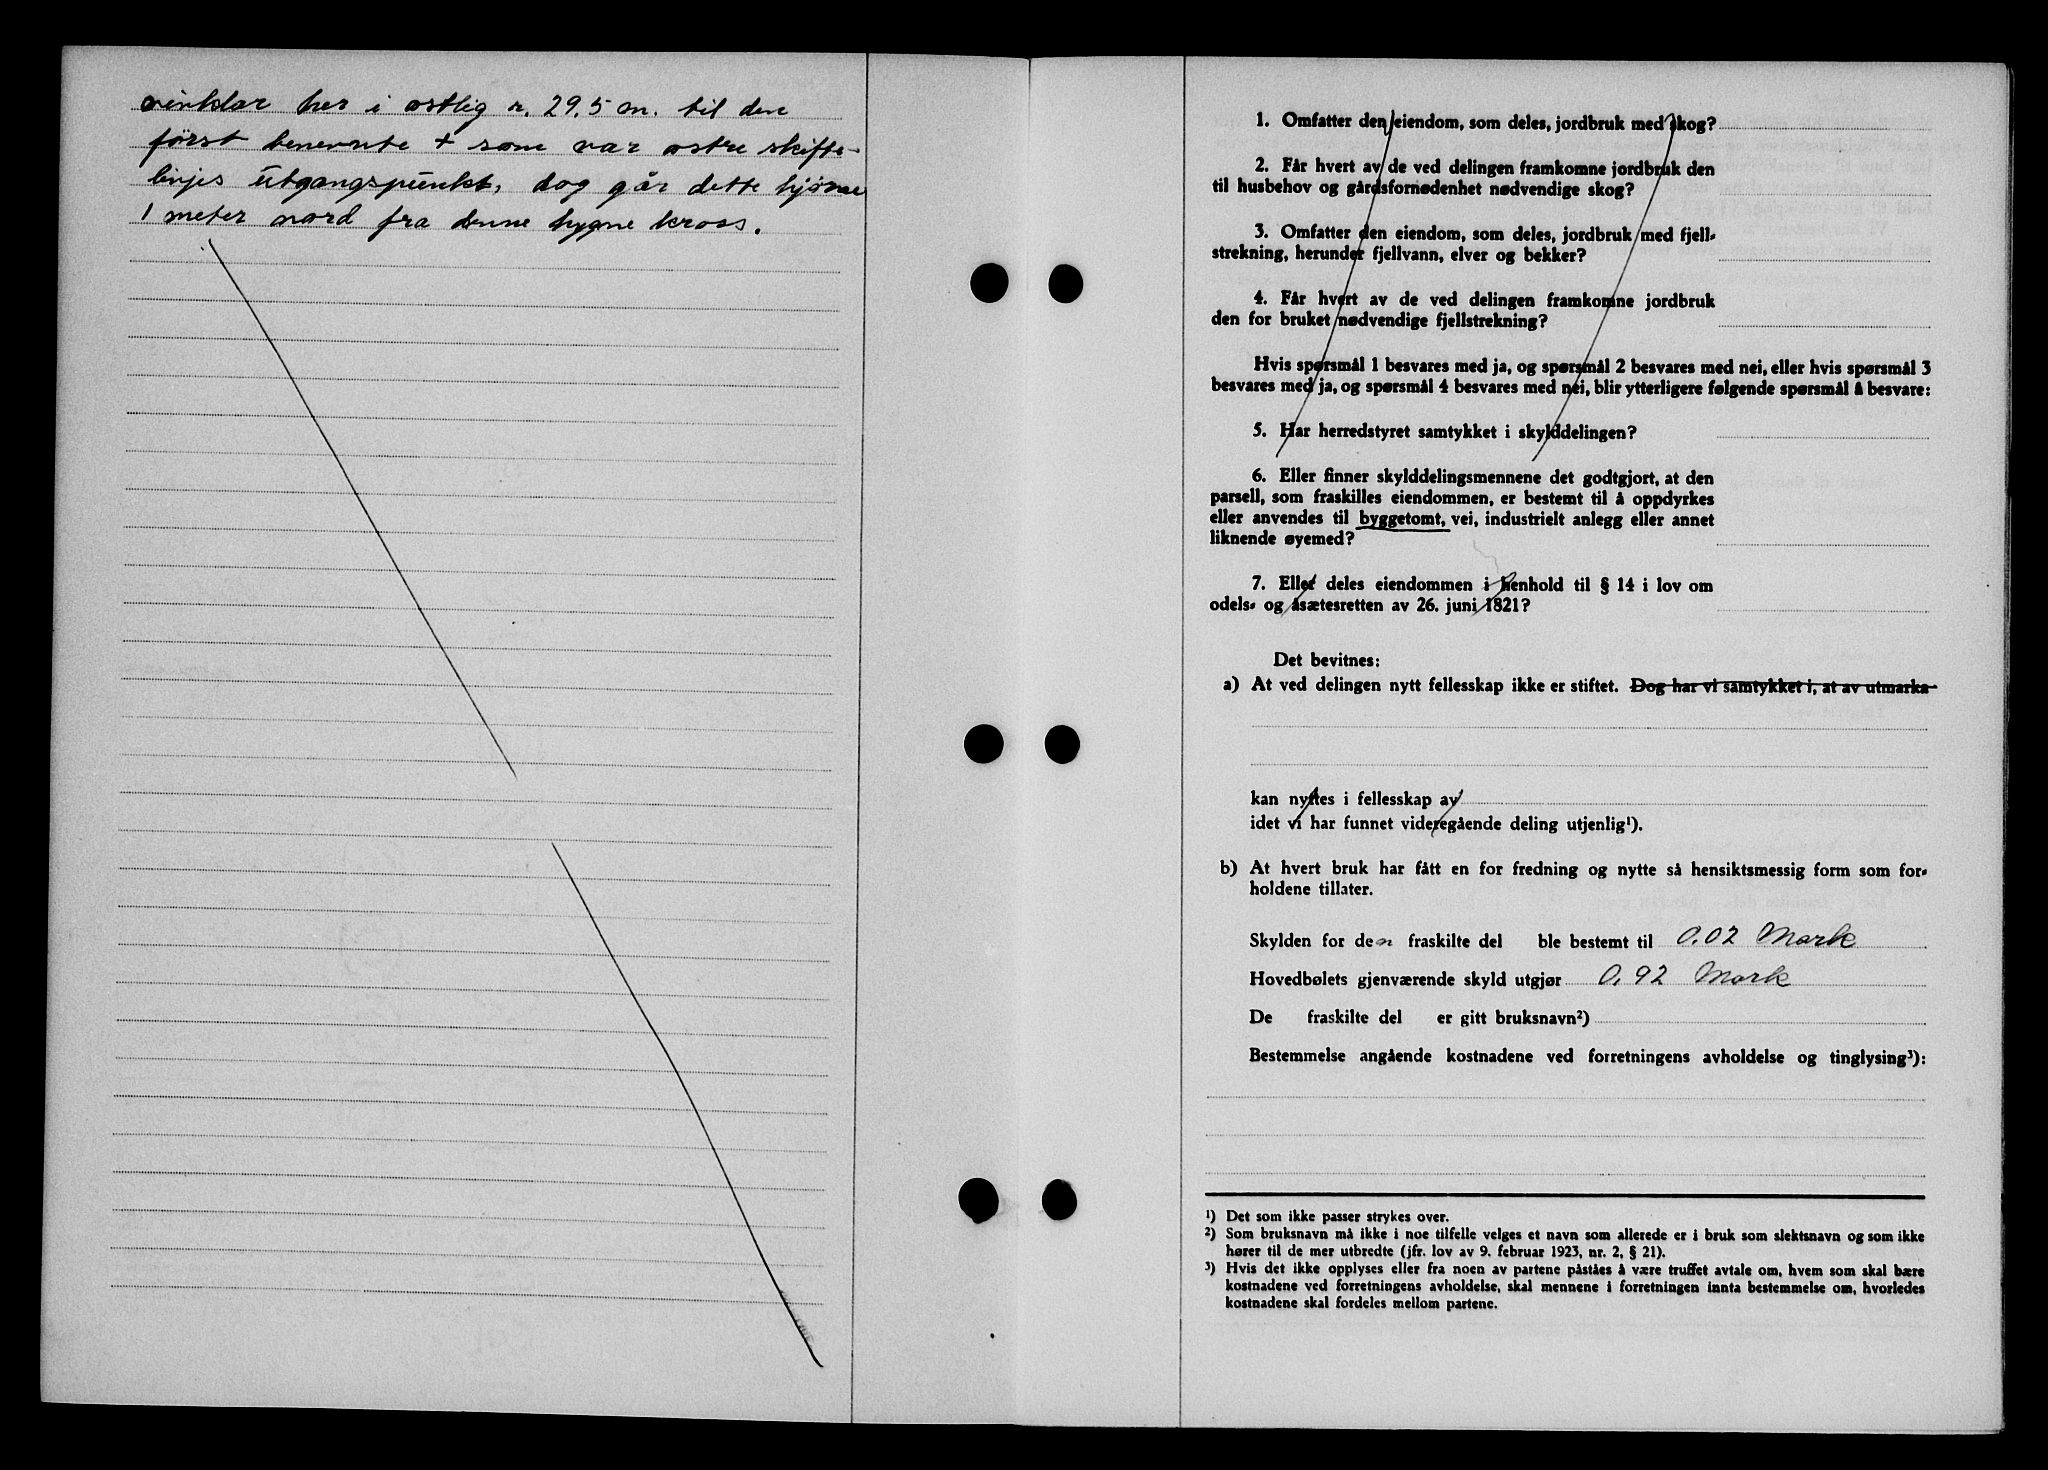 vinklar her i ostlig r. 29,5 m. til den
först benevnte + som var ostre skifte-
linjes utgangspunkt, dog går dette hjörne
1 meter nord fra denne hygne kross.
1. Omfatter den eiendom, som deles, jordbruk med skog?
2. Får hvert av de ved delingen framkomne jordbruk den
til husbehov og gårdsfornødenhet nødvendige skog?
3. Omfatter den eiendom, som deles, jordbruk med fjell-
strekning, herunder fjellvann, elver og bekker?
4. Får hvert av de ved delingen framkomne jordbruk
den for bruket nødvendige fjellstrekning?
Hvis spørsmål 1 besvares med ja, og spørsmål 2 besvares med nei, eller hvis spørsmål 3
besvares med ja, og spørsmål 4 besvares med nei, blir ytterligere følgende spørsmål å besvare:
5. Har herredstyret samtykket i skylddelingen?
6. Eller finner skylddelingsmennene det godtgjort, at den
parsell, som fraskilles eiendommen, er bestemt til å oppdyrkes
eller anvendes til byggetomt, vei, industrielt anlegg eller annet
liknende øyemed?
7. Eller deles eiendommen i henhold til § 14 i lov om
odels- og åsætesretten av 26. juni 1821?
Det bevitnes:
a) At ved delingen nytt fellesskap ikke er stiftet. Dog har vi samtykket i, at av utmarka
kan nyttes i fellesskap av
idet vi har funnet videregående deling utjenlig¹).
b) At hvert bruk har fått en for fredning og nytte så hensiktsmessig form som for-
holdene tillater.
Skylden for den fraskilte del ble bestemt til 0.02 Mark
Hovedbølets gjenværende skyld utgjør 0,92 Mark
De fraskilte del er gitt bruksnavn²)
Bestemmelse angående kostnadene ved forretningens avholdelse og tinglysing³):
¹) Det som ikke passer strykes over.
²) Som bruksnavn må ikke i noe tilfelle velges et navn som allerede er i bruk som slektsnavn og som ikke
hører til de mer utbredte (jfr. lov av 9. februar 1923, nr. 2, § 21).
³) Hvis det ikke opplyses eller fra noen av partene påståes å være truffet avtale om, hvem som skal bære
kostnadene ved forretningens avholdelse, skal mennene i forretningen innta bestemmelse om, hvorledes
kostnadene skal fordeles mellom partene.